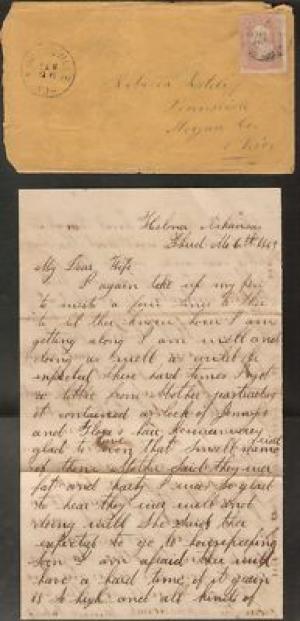 Rebecca
Pennsville
Morgan Co
Ohio
Helena Arkansas
6th
My Dear Wife
I again take up my pen
to write a few lines to thee
to let thee know how I am
getting along I am well and
doing as well as could be
expected these hard times I got
a letter from Mother yesterday
it contained a lock of
and hair I was very
glad to see that small
of them Mother said they were
fat and harty I was so glad
to hear they were well and
doing well She said thee
expected to go to housekeeping
soon I am afraid thee will
have a hard time of it grain
is so high and all kinds of